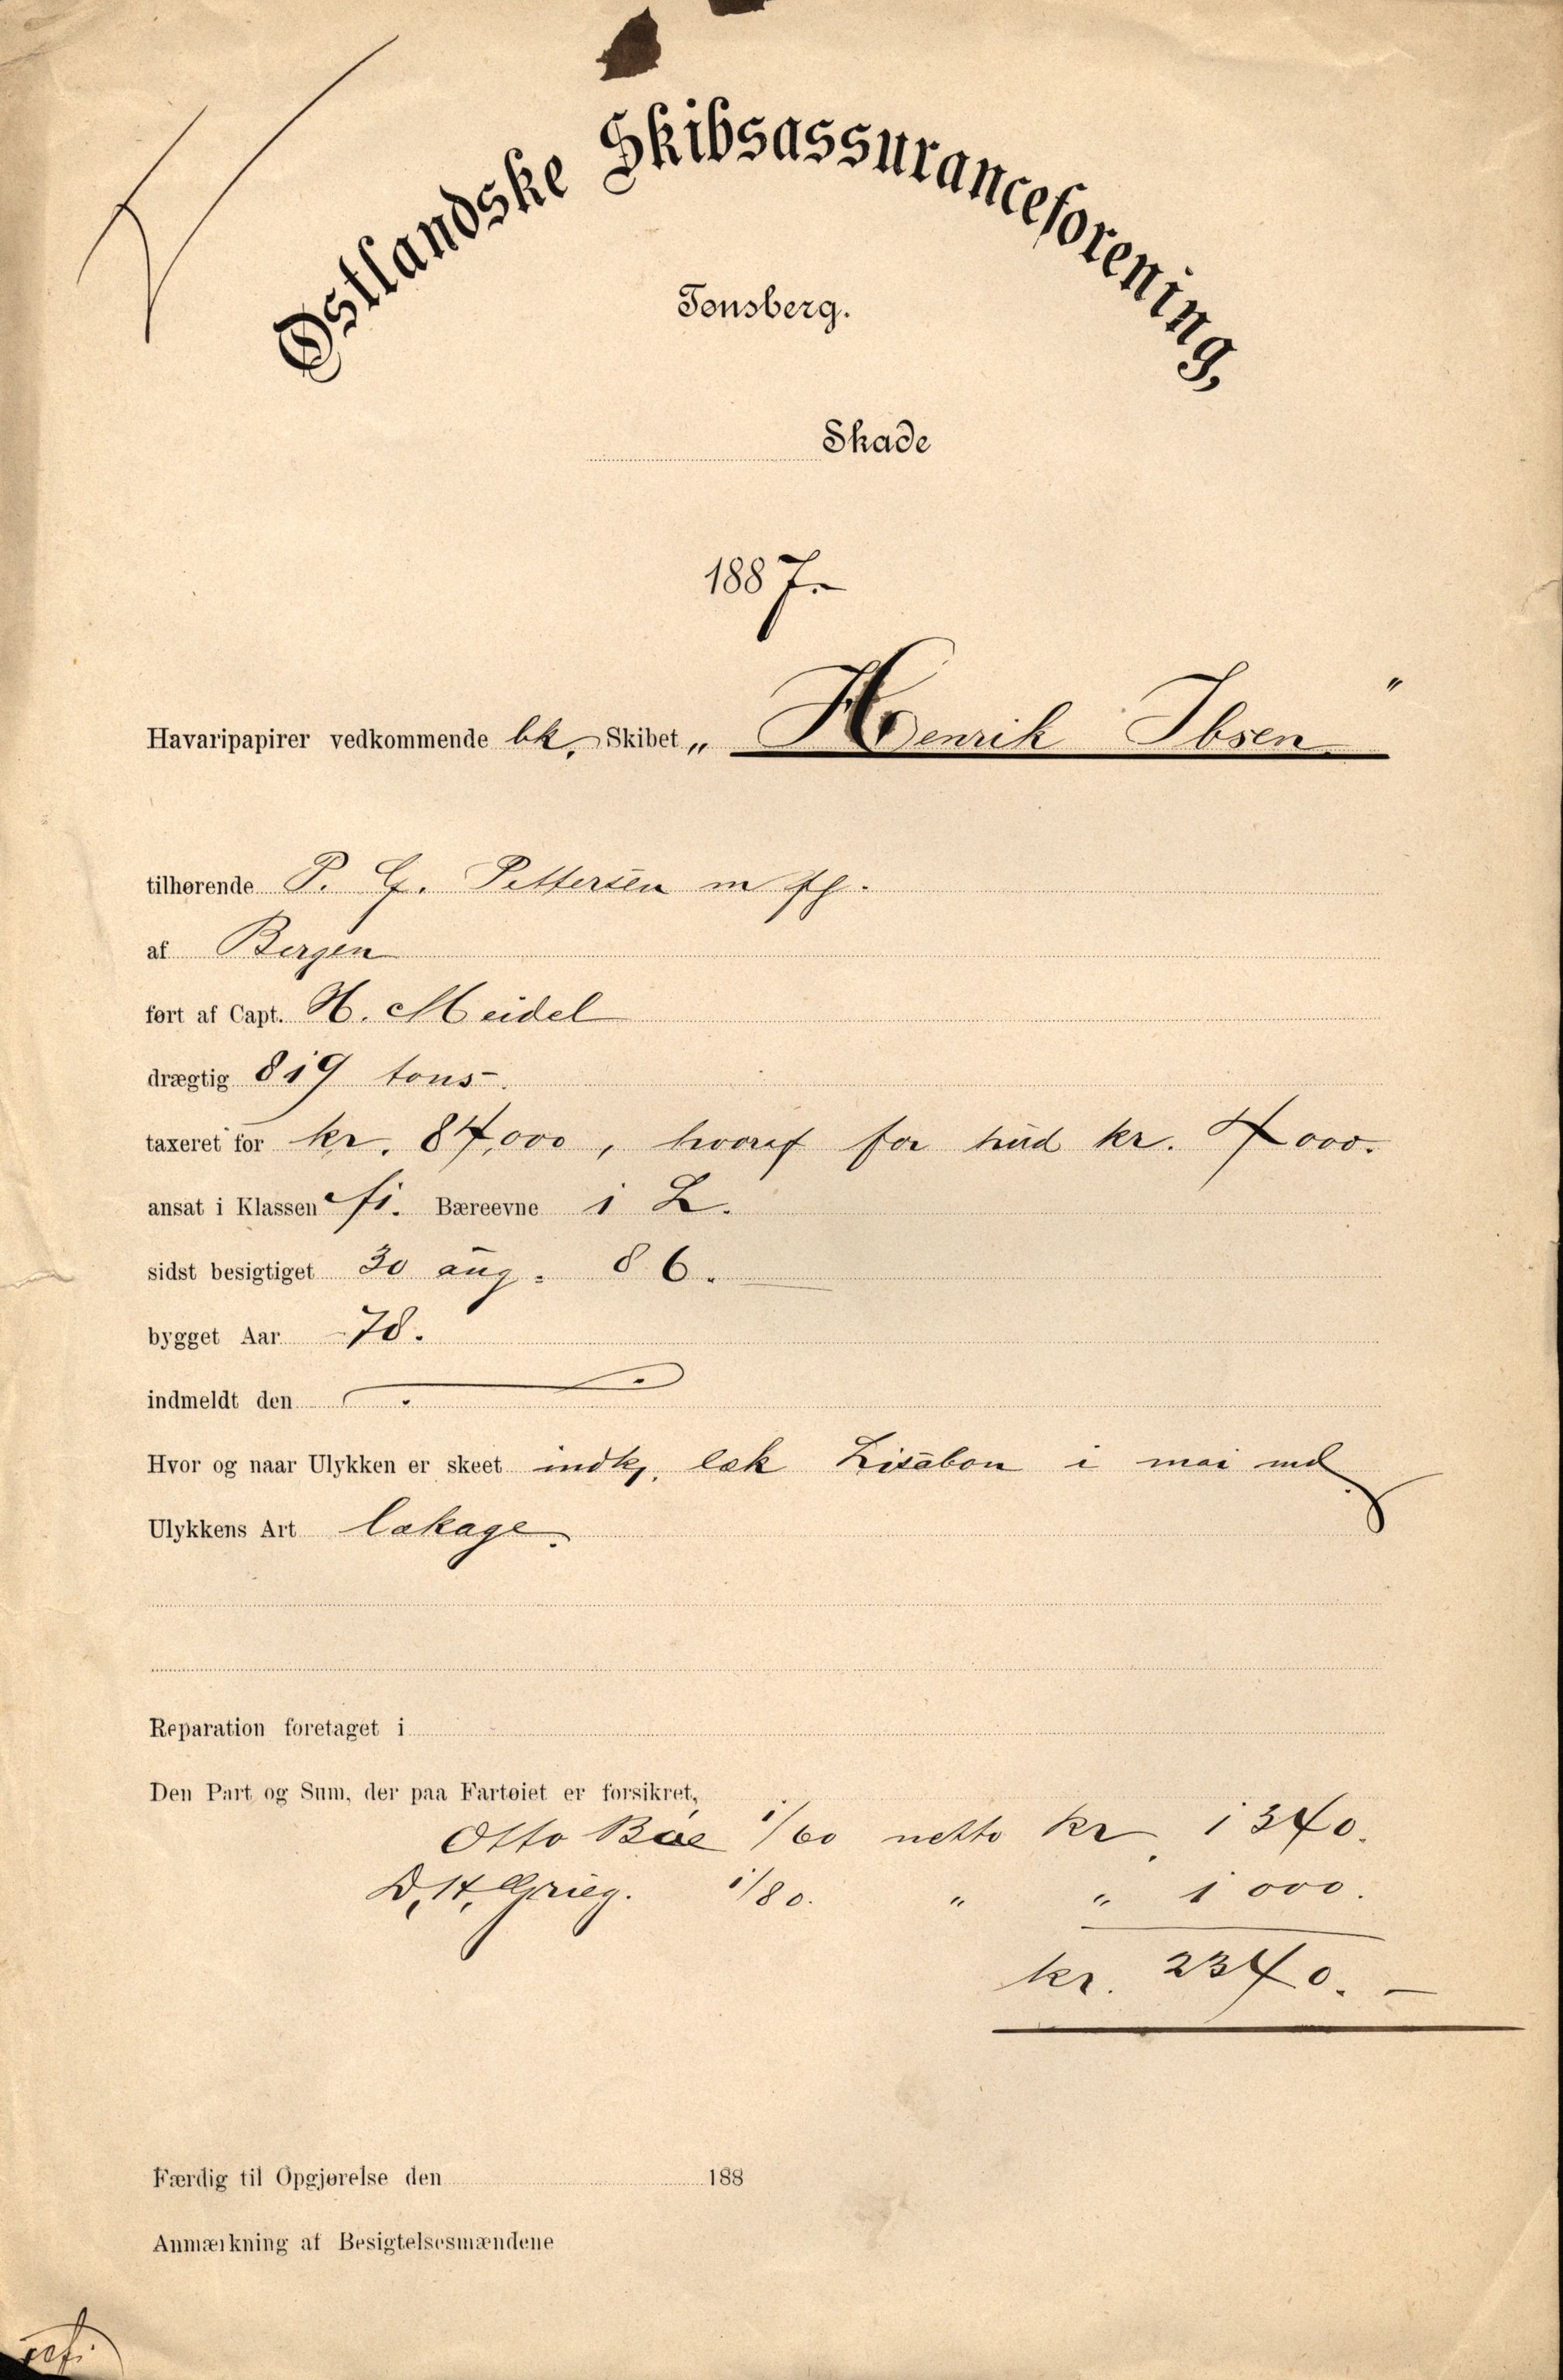 Østlandske Skibsassuranceforening,
Tønsberg.
Skade
1887.
Havaripapirer vedkommende bk. Skibet „ Henrik Ibsen "
tilhørende P. G. Pettersen m fl.
af Bergen
ført af Capt. H. Meidel
drægtig 819 tons.
taxeret for kr. 84,000, hvoraf for hud kr. 4000.
ansat i Klassen Bæreevne 1 L.
sidst besigtiget 30 aug. 86.
bygget Aar 78.
indmeldt den
Hvor og naar Ulykken er skeet indkj. læk Lisabon i mai md
Ulykkens Art lækage.
Reparation foretaget i
Den Part og Sum, der paa Fartøiet er forsikret,
Otto Bøe 1/60 netto kr. 1340.
D. H. Grieg. 1/80. " " 1000.
kr. 2340. —
Færdig til Opgjørelse den 188
Anmærkning af Besigtelsesmændene